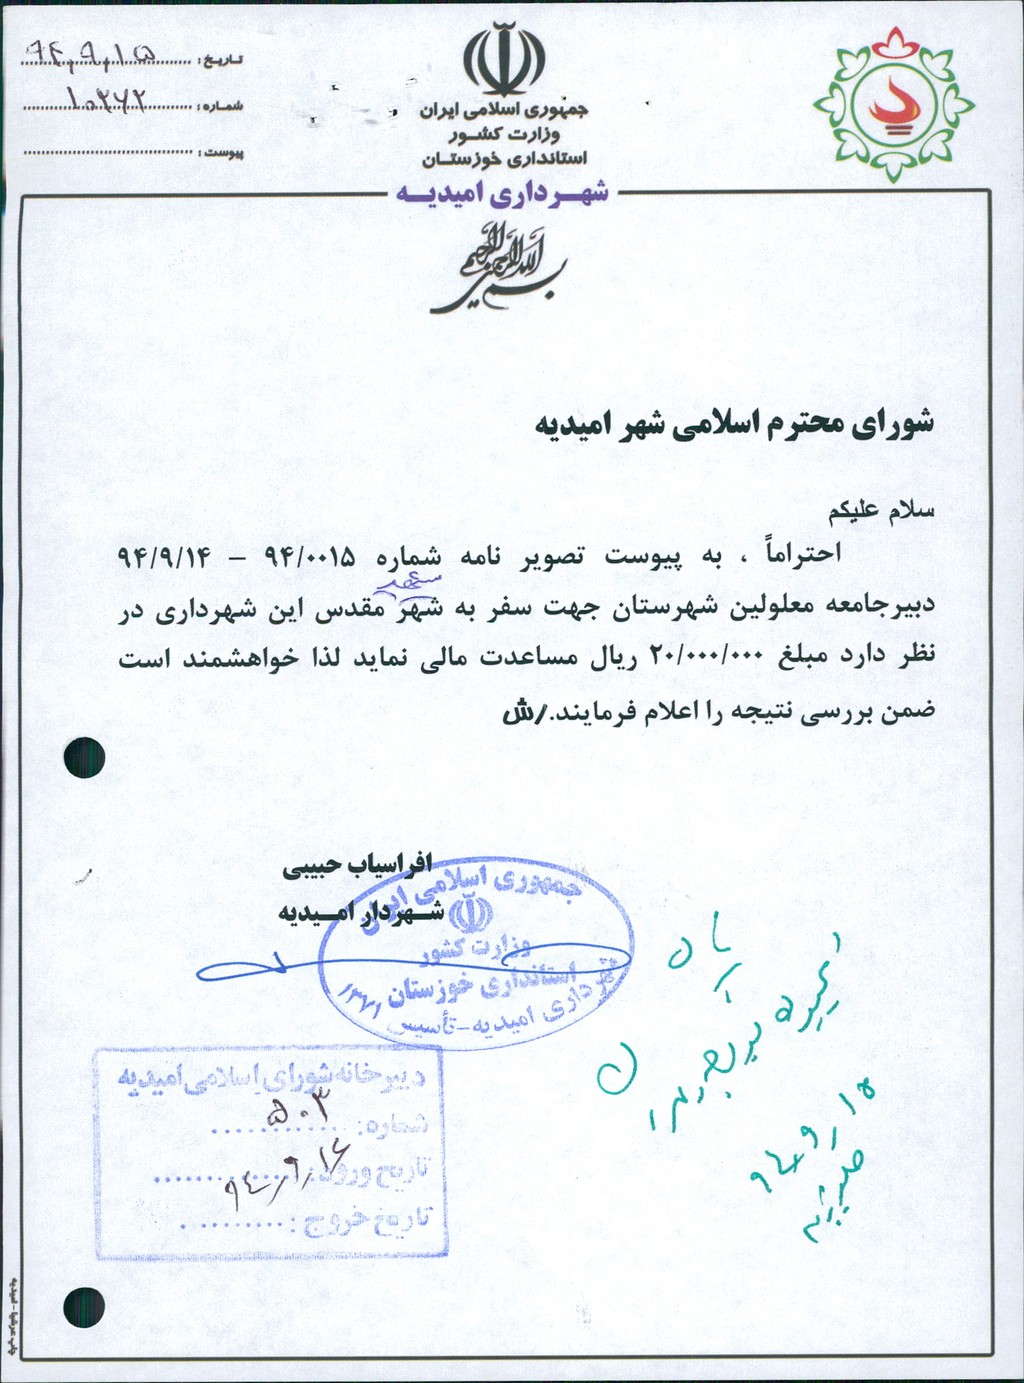 تاریخ : ۹۴٫۹٫۱۵
شماره : ۱۰۲۶۲
پیوست :
جمهوری اسلامی ایران
وزارت کشور
استانداری خوزستان
شهرداری امیدیه
بسم الله الرحمن الرحیم
شورای محترم اسلامی شهر امیدیه
سلام علیکم
احتراماً ، به پیوست تصویر نامه شماره ۹۴/۰۰۱۵ – ۹۴/۹/۱۴
مشهد
دبیرجامعه معلولین شهرستان جهت سفر به شهر مقدس این شهرداری در
نظر دارد مبلغ ۲۰/۰۰۰/۰۰۰ ریال مساعدت مالی نماید لذا خواهشمند است
ضمن بررسی نتیجه را اعلام فرمایند./ش
افراسیاب حبیبی
شهردار امیدیه
جمهوری اسلامی ایران
وزارت کشور
استانداری خوزستان
شهرداری امیدیه-تأسیس
دبیرخانه شورای اسلامی امیدیه
شماره: ۵۰۳
تاریخ ورود: ۹۴٫۹٫۱۶
تاریخ خروج :